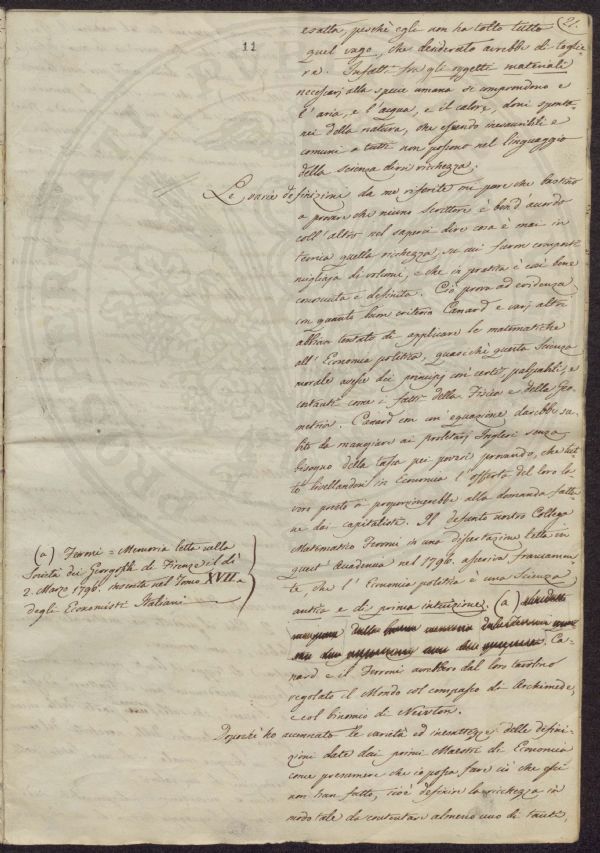 21.
11
esatta, perchè egli non ha tolto tutto
quel vago, che desiderato avrebbe di toglie-
re. Infatti fra gli oggetti materiali
necessarj alla specie umana si comprendono e
l'aria, e l'acqua, e il calore, doni sponta-
nei della natura, che essendo inesauribili e
comuni a tutti non possono nel linguaggio
della scienza dirsi ricchezza.
Le varie definizioni da me riferite mi pare che bastino
a provare che niuno Scrittore è bend'accordo
coll'altro nel saperci dire cosa è mai in
teorica quella ricchezza, su cui furon composti
migliaja di volumi, e che in pratica è così bene
conosciuta e definita. Ciò prova ad evidenza
con quanto buon criterio Canard e varj altri
abbian tentato di applicare le matematiche
all'Economia politica, quasichè questa Scienza
morale avesse dei principj così certi, palpabili, e
costanti come i fatti della Fisica e della Geo-
metria. Canard con un'equazione darebbe su-
bito da mangiare ai proletarj Inglesi senza
bisogno della tassa pei poveri pensando, che tut-
to livellandosi in Economia l'offerta del loro la-
voro presto si proporzionerebbe alla domanda fatta-
ne dai capitalisti. Il defunto nostro Collega
Matematico Ferroni in una dissertazione letta in
quest'Accademia nel 1796. asseriva francamen-
te che l'Economia politica è una Scienza
antica e di prima intuizione. (a)
Ca-
nard e il Ferroni avrebbero dal loro tavolino
regolato il Mondo col compasso di Archimede,
e col binomio di Newton.
Dopochè ho accennato le varietà ed inesattezze delle defini-
zioni date dai primi Maestri di Economia
come presumere che io possa fare ciò che essi
non han fatto, cioè definire la ricchezza in
modo tale da contentare almeno uno di tanti,
(a) Ferroni = Memoria letta nella
Società dei Georgofili di Firenze il dì
2. Marzo 1796. inserita nel Tomo XVII.
degli Economisti Italiani